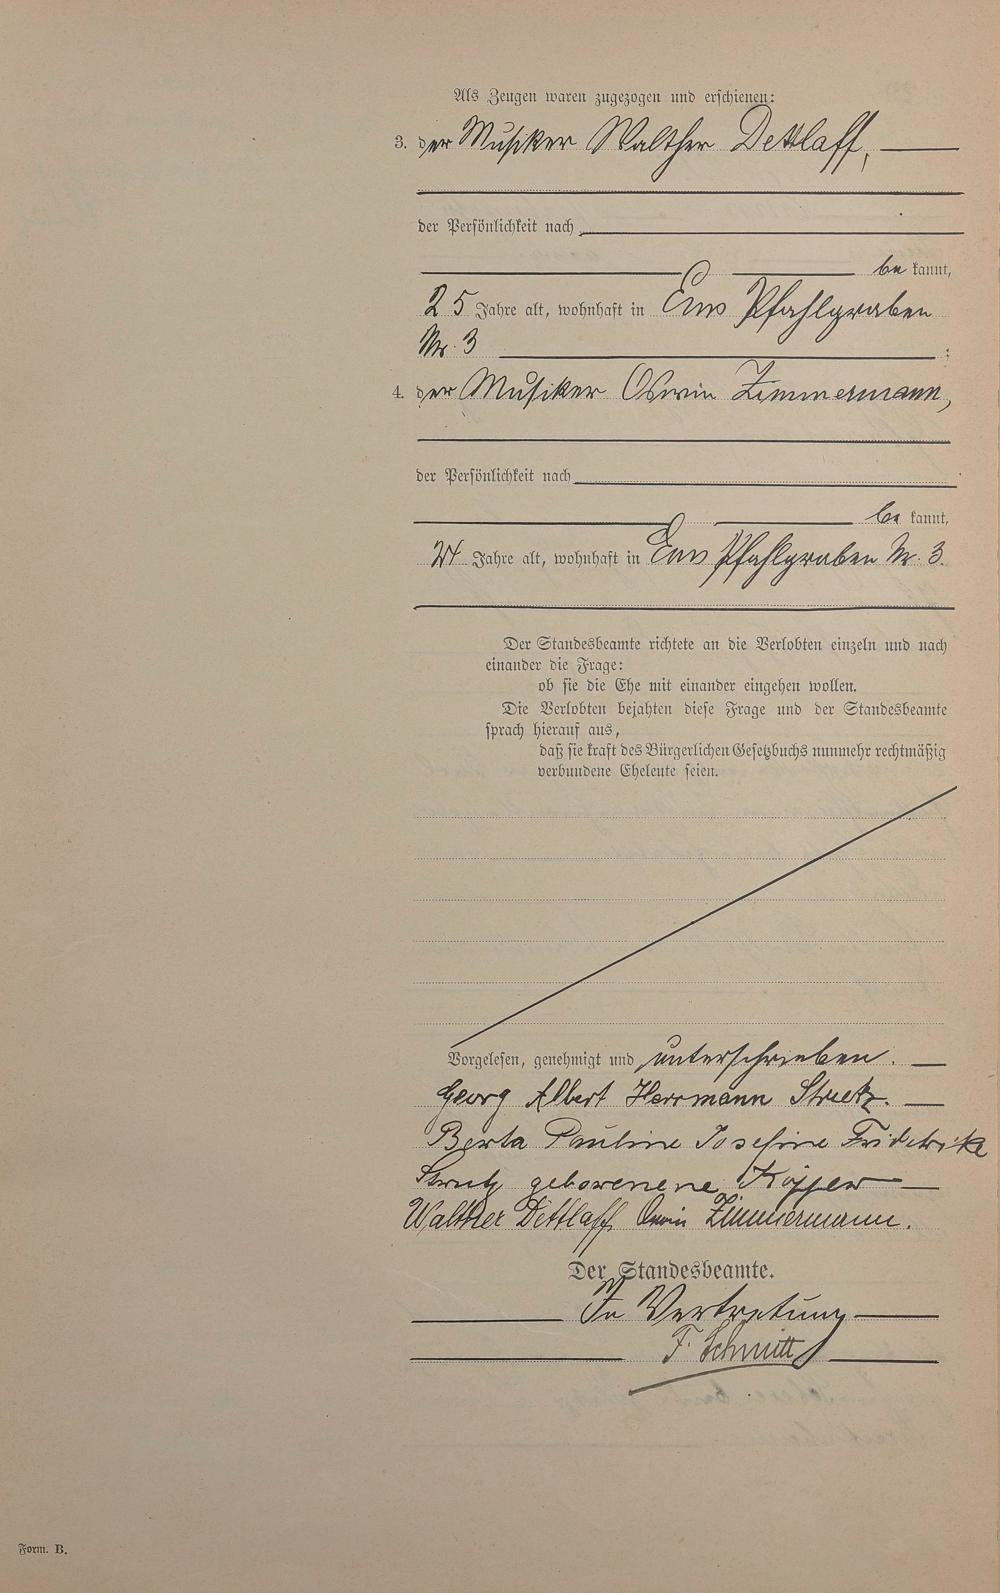 Als Zeugen waren zugezogen und erschienen:
3. der Musiker Walther Dettlaff,
der Persönlichkeit nach
be kannt,
25 Jahre alt, wohnhaft in Ems Pfahlgraben
Nr. 3 ;
4. der Musiker Oswin Zimmermann,
der Persönlichkeit nach
be kannt,
24 Jahre alt, wohnhaft in Ems Pfahlgraben Nr. 3.
Der Standesbeamte richtete an die Verlobten einzeln und nach
einander die Frage:
ob sie die Ehe mit einander eingehen wollen.
Die Verlobten bejahten diese Frage und der Standesbeamte
sprach hierauf aus,
daß sie kraft des Bürgerlichen Gesetzbuchs nunmehr rechtmäßig
verbundene Eheleute seien.
Vorgelesen, genehmigt und unterschrieben.
Georg Albert Herrmann
Berta Pauline Josefine Fridrike
geborenene
Walther Dettlaff Oswin Zimmermann.
Der Standesbeamte.
In Vertretung
F. Schmitt
Form. B.